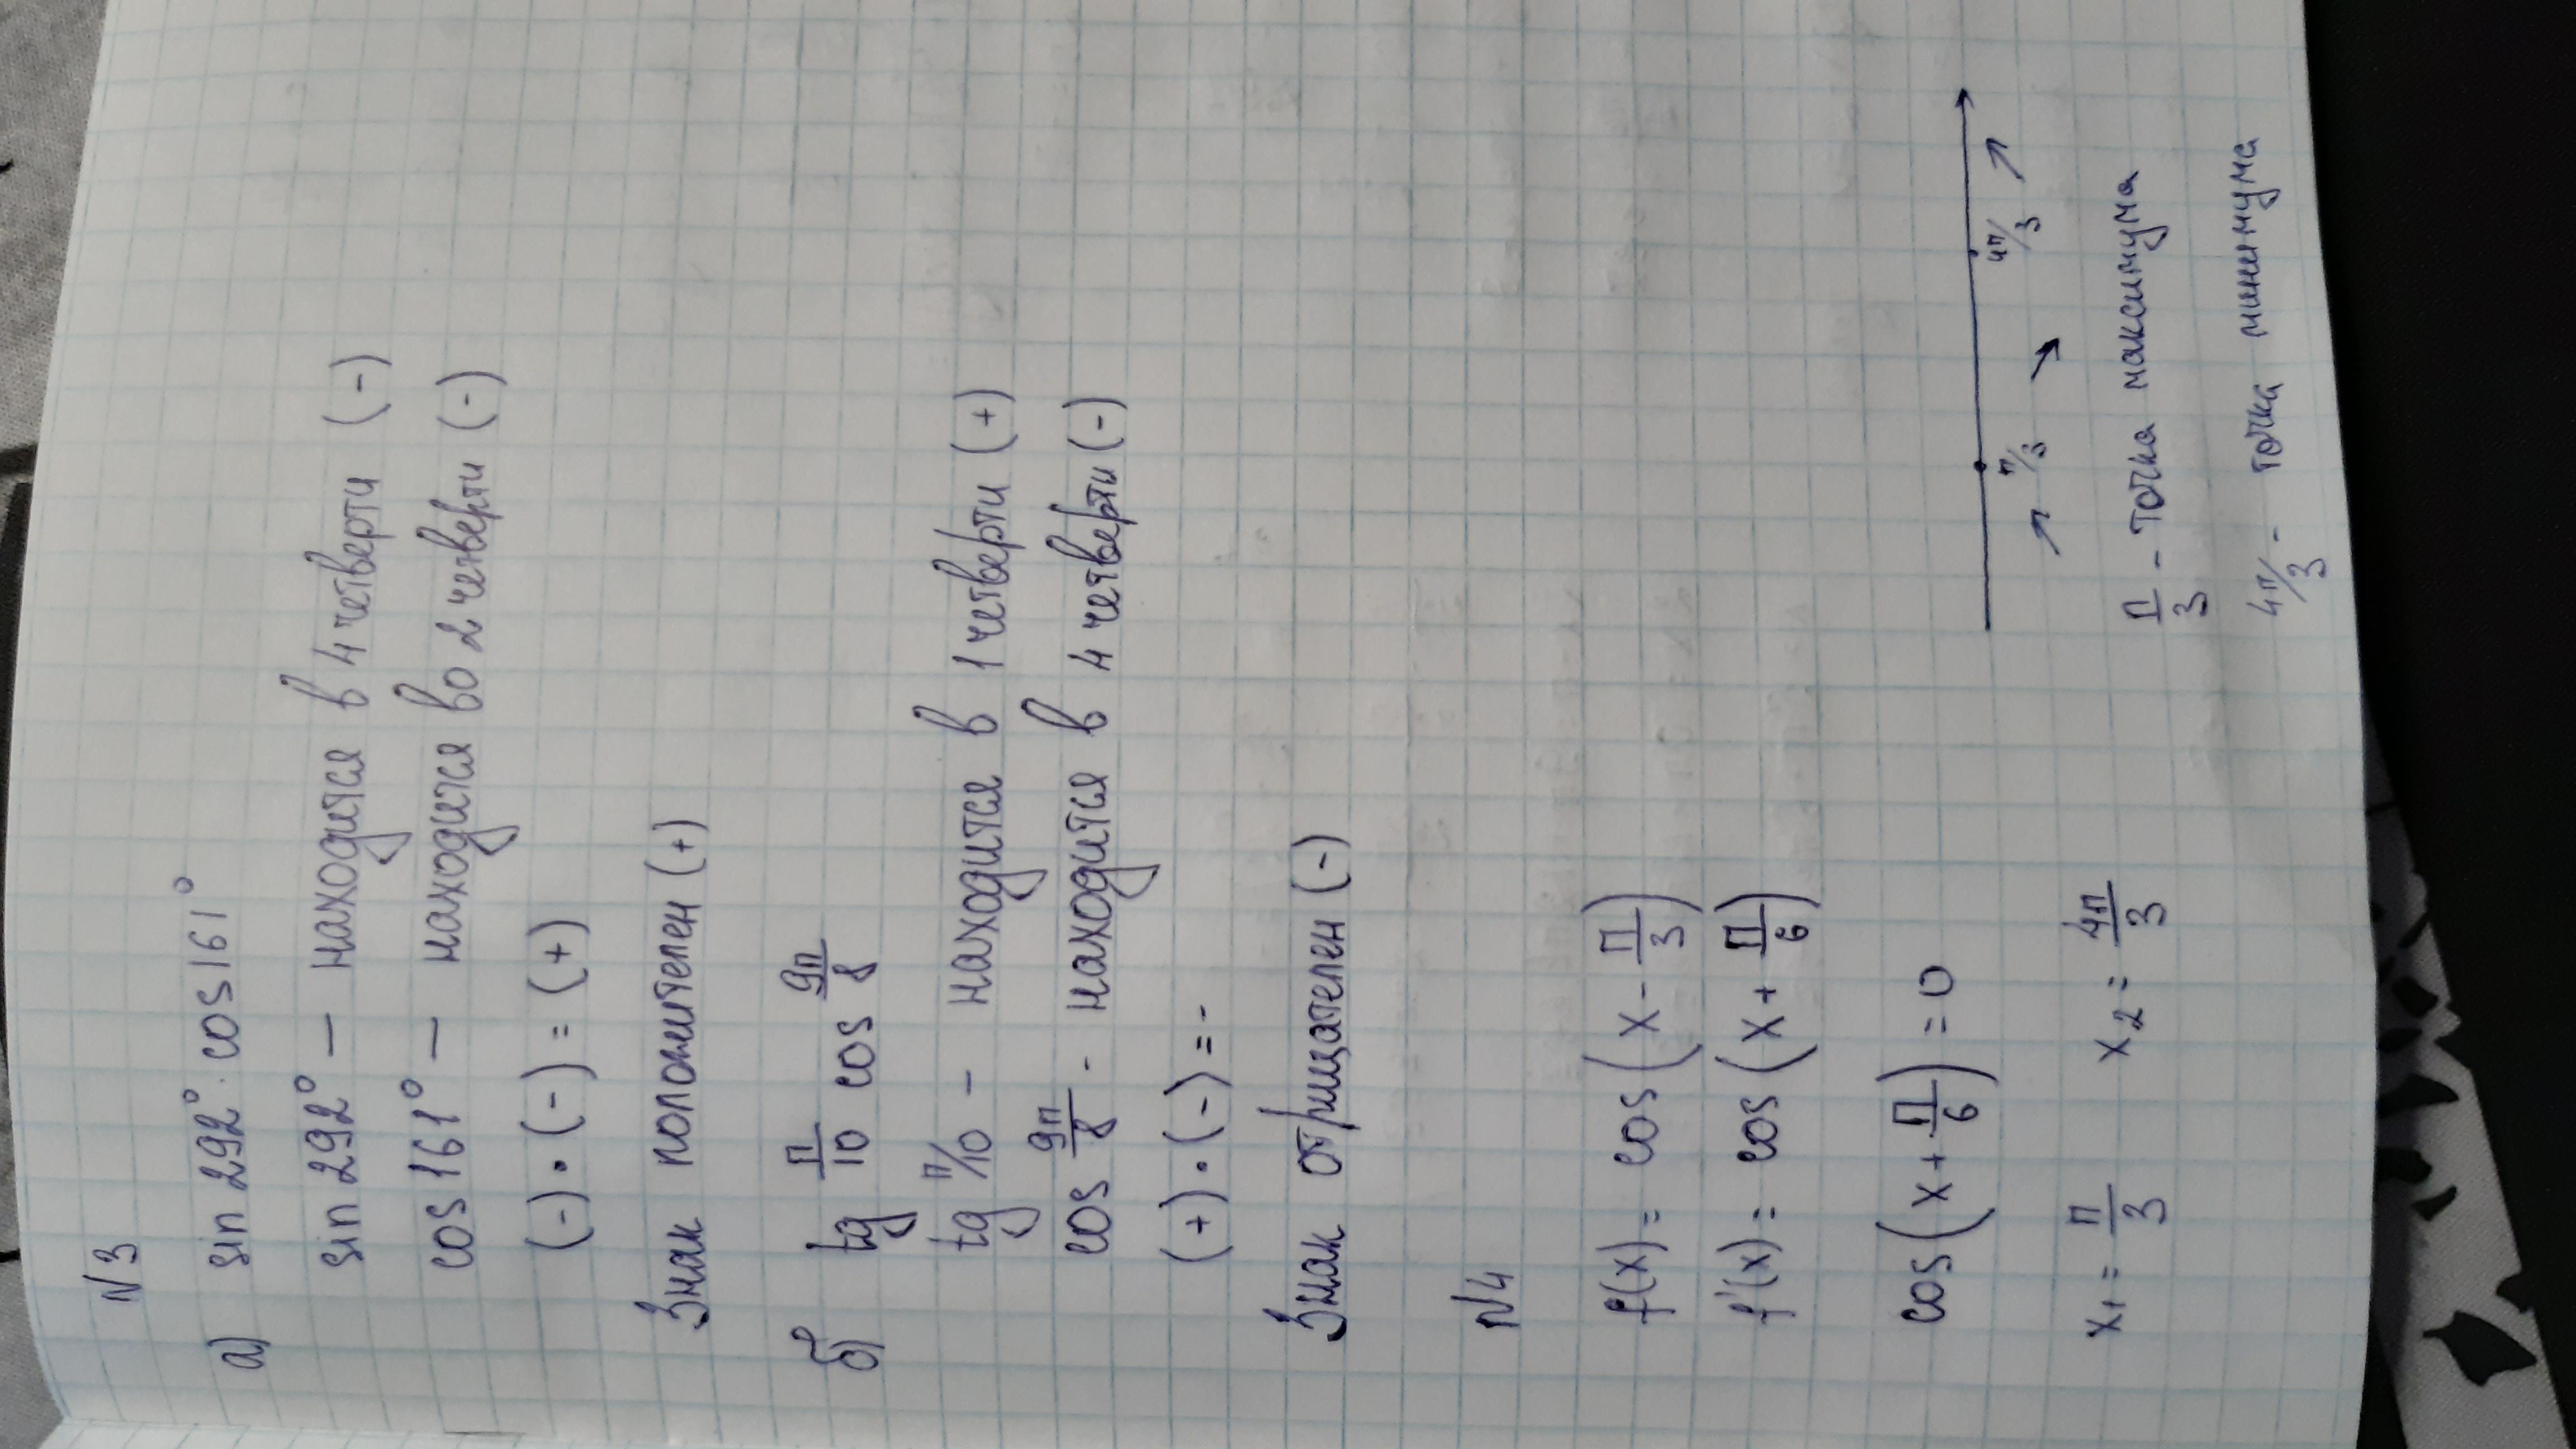 N3
а) sin 292° · cos 161°
sin 292° — находится в 4 четверти (-)
cos 161° — находится во 2 четверти (-)
(-) · (-) = (+)
Знак положителен (+)
б) tg π/10 cos 9π/8
tg π/10 - находится в 1 четверти (+)
cos 9π/8 - находится в 4 четверти (-)
(+) · (-) = -
Знак отрицателен (-)
N4
f(x) = cos(x - π/3)
f'(x) = cos(x + π/6)
cos(x + π/6) = 0
x₁ = π/3 x₂ = 4π/3
↗ π/3 ↘ 4π/3 ↗
π/3 - точка максимума
4π/3 - точка минимума